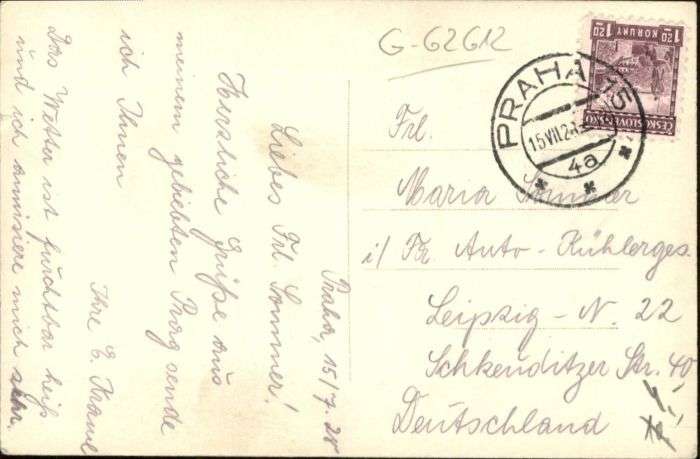 G-62612
1.20 KORUNY 1.20
ČESKOSLOVENSKO
PRAHA 15
15.VII.2
4a
Frl.
Maria Sommer
i/ Fr. Auto-Kühlerges.
Leipzig-N. 22
Schkeuditzer Str. 40
Deutschland
Praha, 15/7. 28
Liebes Frl. Sommer!
Herzliche Grüße aus
meinem geliebten Prag sende
ich Ihnen
Ihre E. 
Das Wetter ist furchtbar heiß
und ich amüsiere mich sehr,